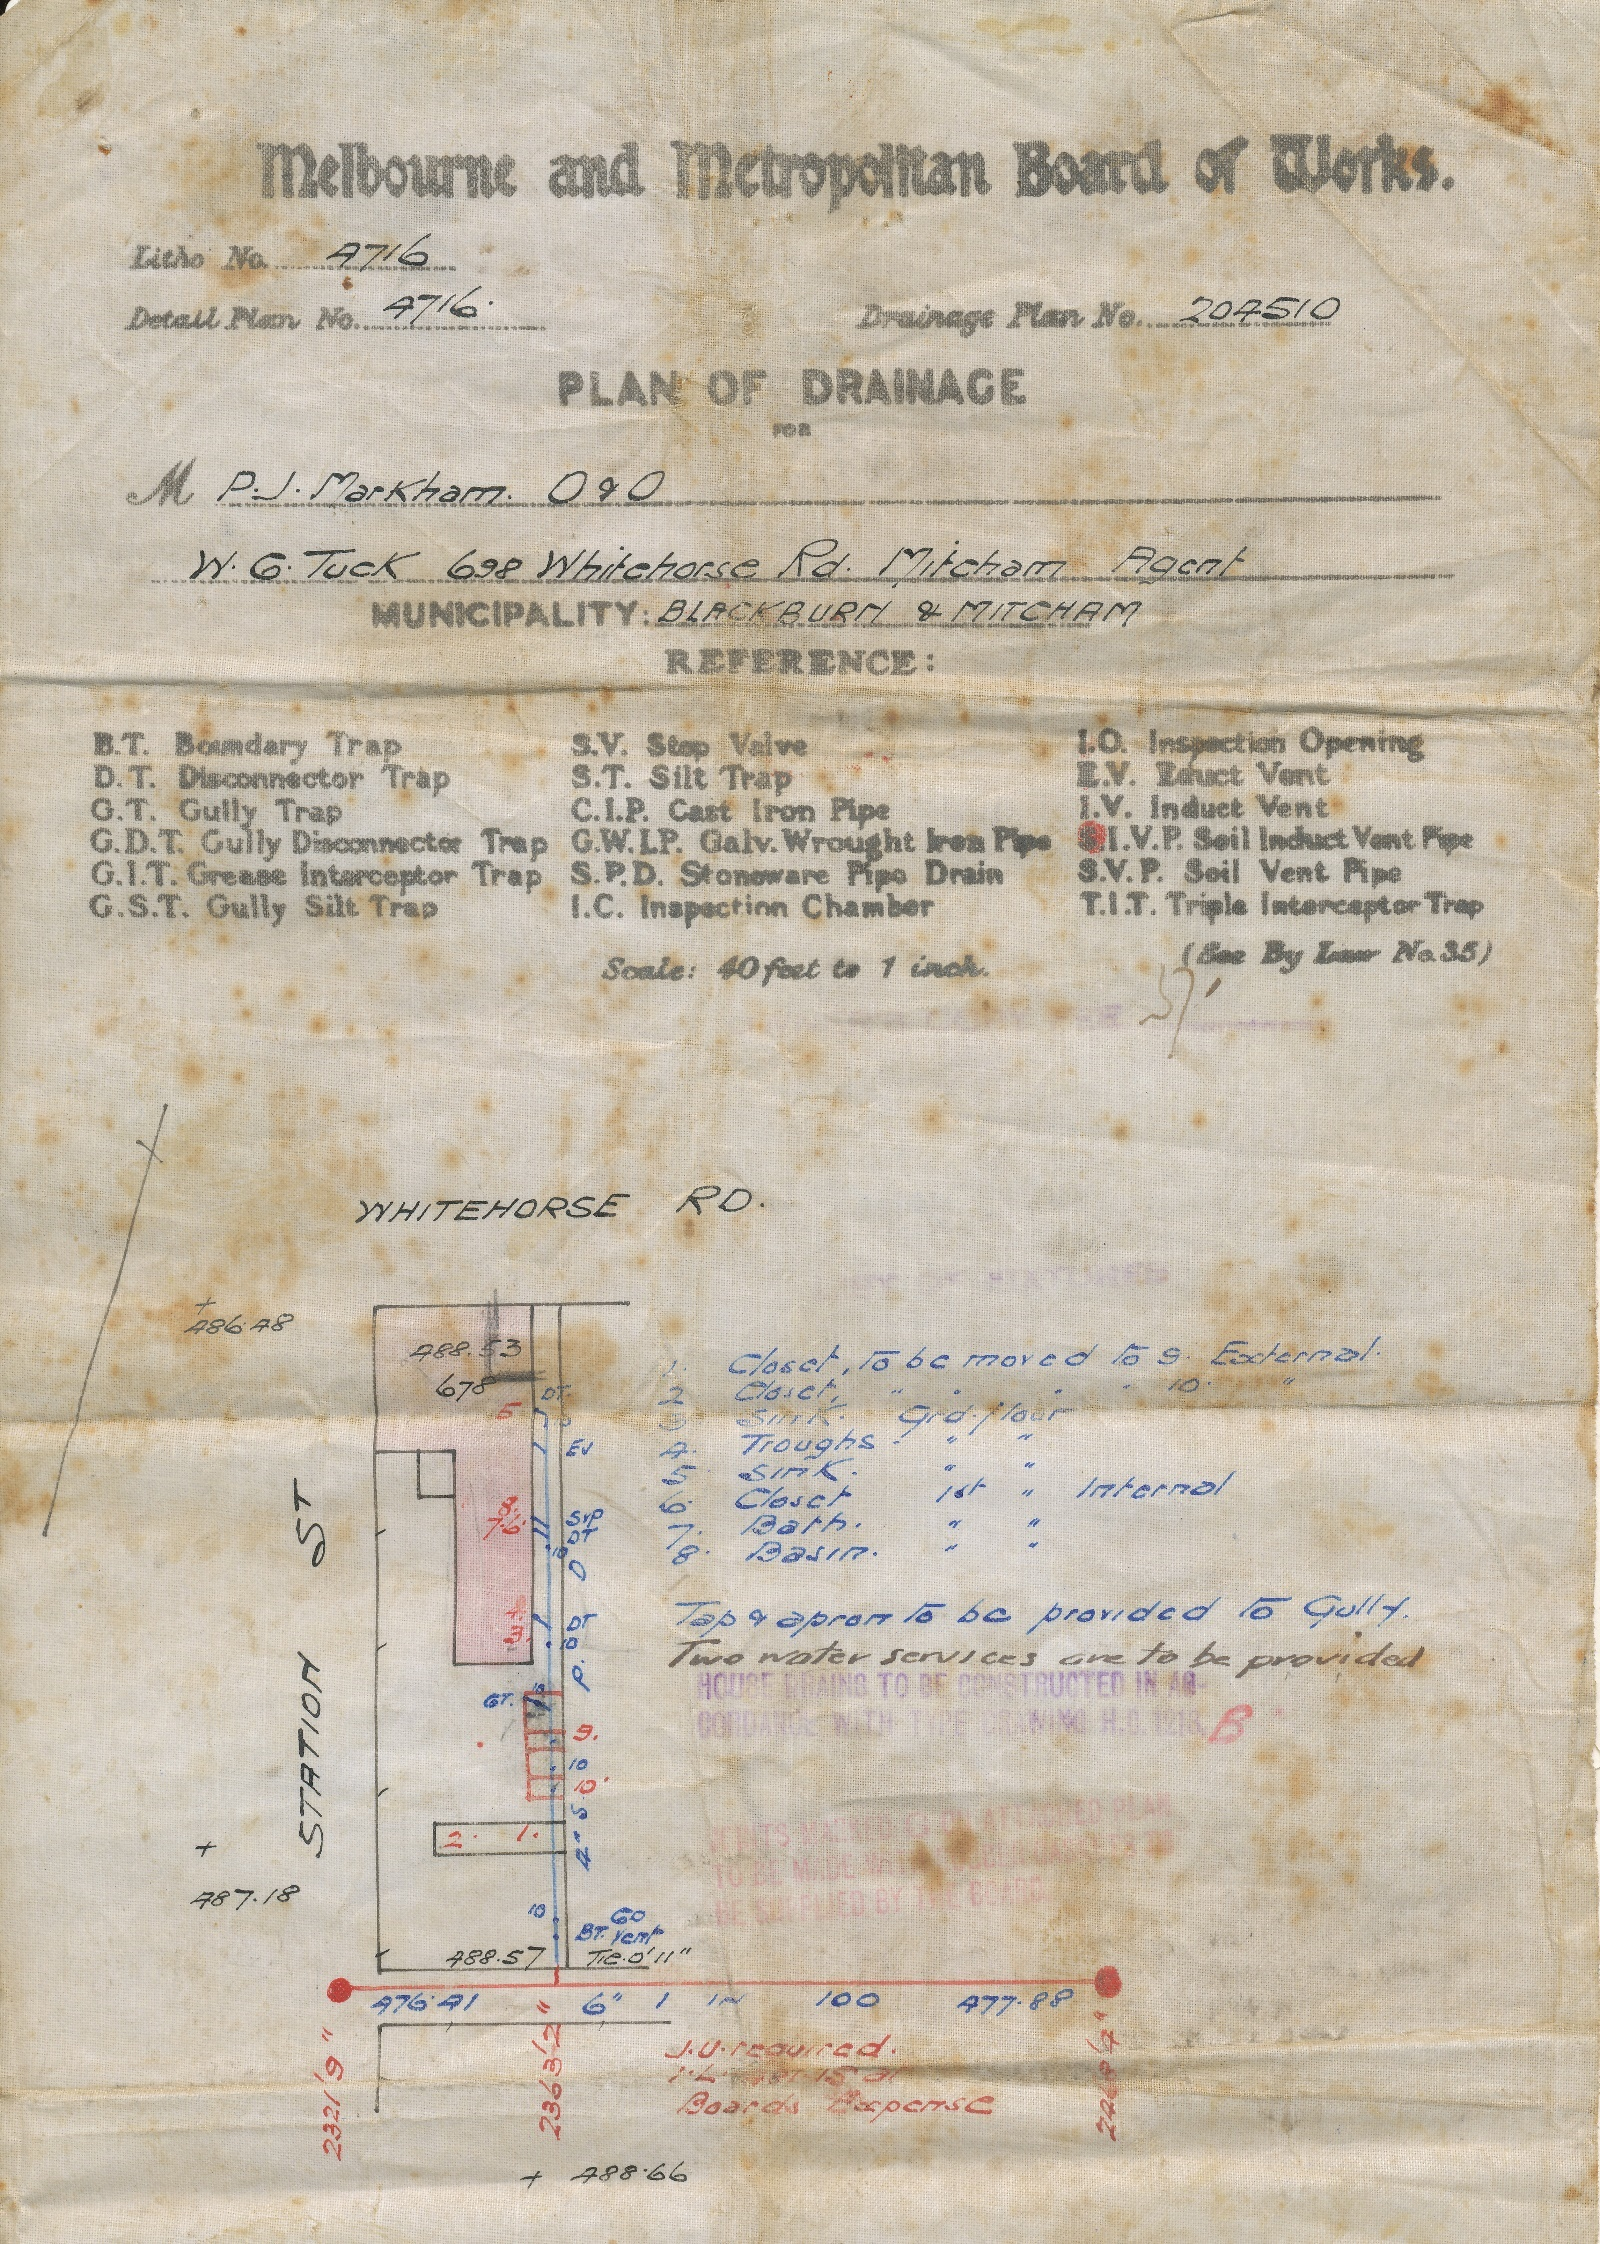 Melbourne and Metropolitan Board of Works.
Litho No. 4716
Detail Plan No. 4716.
Drainage Plan No. 204510
PLAN OF DRAINAGE
FOR
M P.J. Markham. O & O
W. G. Tuck 698 Whitehorse Rd. Mitcham Agent
MUNICIPALITY: BLACKBURN & MITCHAM
REFERENCE:
B.T. Boundary Trap
D.T. Disconnector Trap
G.T. Gully Trap
G.D.T. Gully Disconnector Trap
G.I.T. Grease Interceptor Trap
G.S.T. Gully Silt Trap
S.V. Stop Valve
S.T. Silt Trap
C.I.P. Cast Iron Pipe
G.W.I.P. Galv. Wrought Iron Pipe
S.P.D. Stoneware Pipe Drain
I.C. Inspection Chamber
I.O. Inspection Opening
E.V. Educt Vent
I.V. Induct Vent
S.I.V.P. Soil Induct Vent Pipe
S.V.P. Soil Vent Pipe
T.I.T. Triple Interceptor Trap
(See By Law No. 35)
Scale: 40 feet to 1 inch.
WHITEHORSE RD.
486.48
488.53
678
DT.
5
EV
8.
7.6.
SVP
DT
IO
D
DT
IO
3.
P.
GT.
IO
9.
IO
10.
S.
4"
2. 1.
487.18
IO
60
BT. Vent
488.57 Tie. 0'11"
STATION ST
1. Closet, To be moved to 9. External.
2 Closet, " " " " 10. "
3 Sink. Grd. flour
4. Troughs. " "
5 Sink. " "
6. Closet 1st " Internal
7. Bath. " "
8. Basin. " "
Tap & apron to be provided to Gully.
Two water services are to be provided
HOUSE DRAINS TO BE CONSTRUCTED IN AC-
CORDANCE WITH B
TO BE MADE
476.41 6" 1 IN 100 477.88
2321'9"
2363'2"
J.U. required.
Boards Expense
+ 488.66